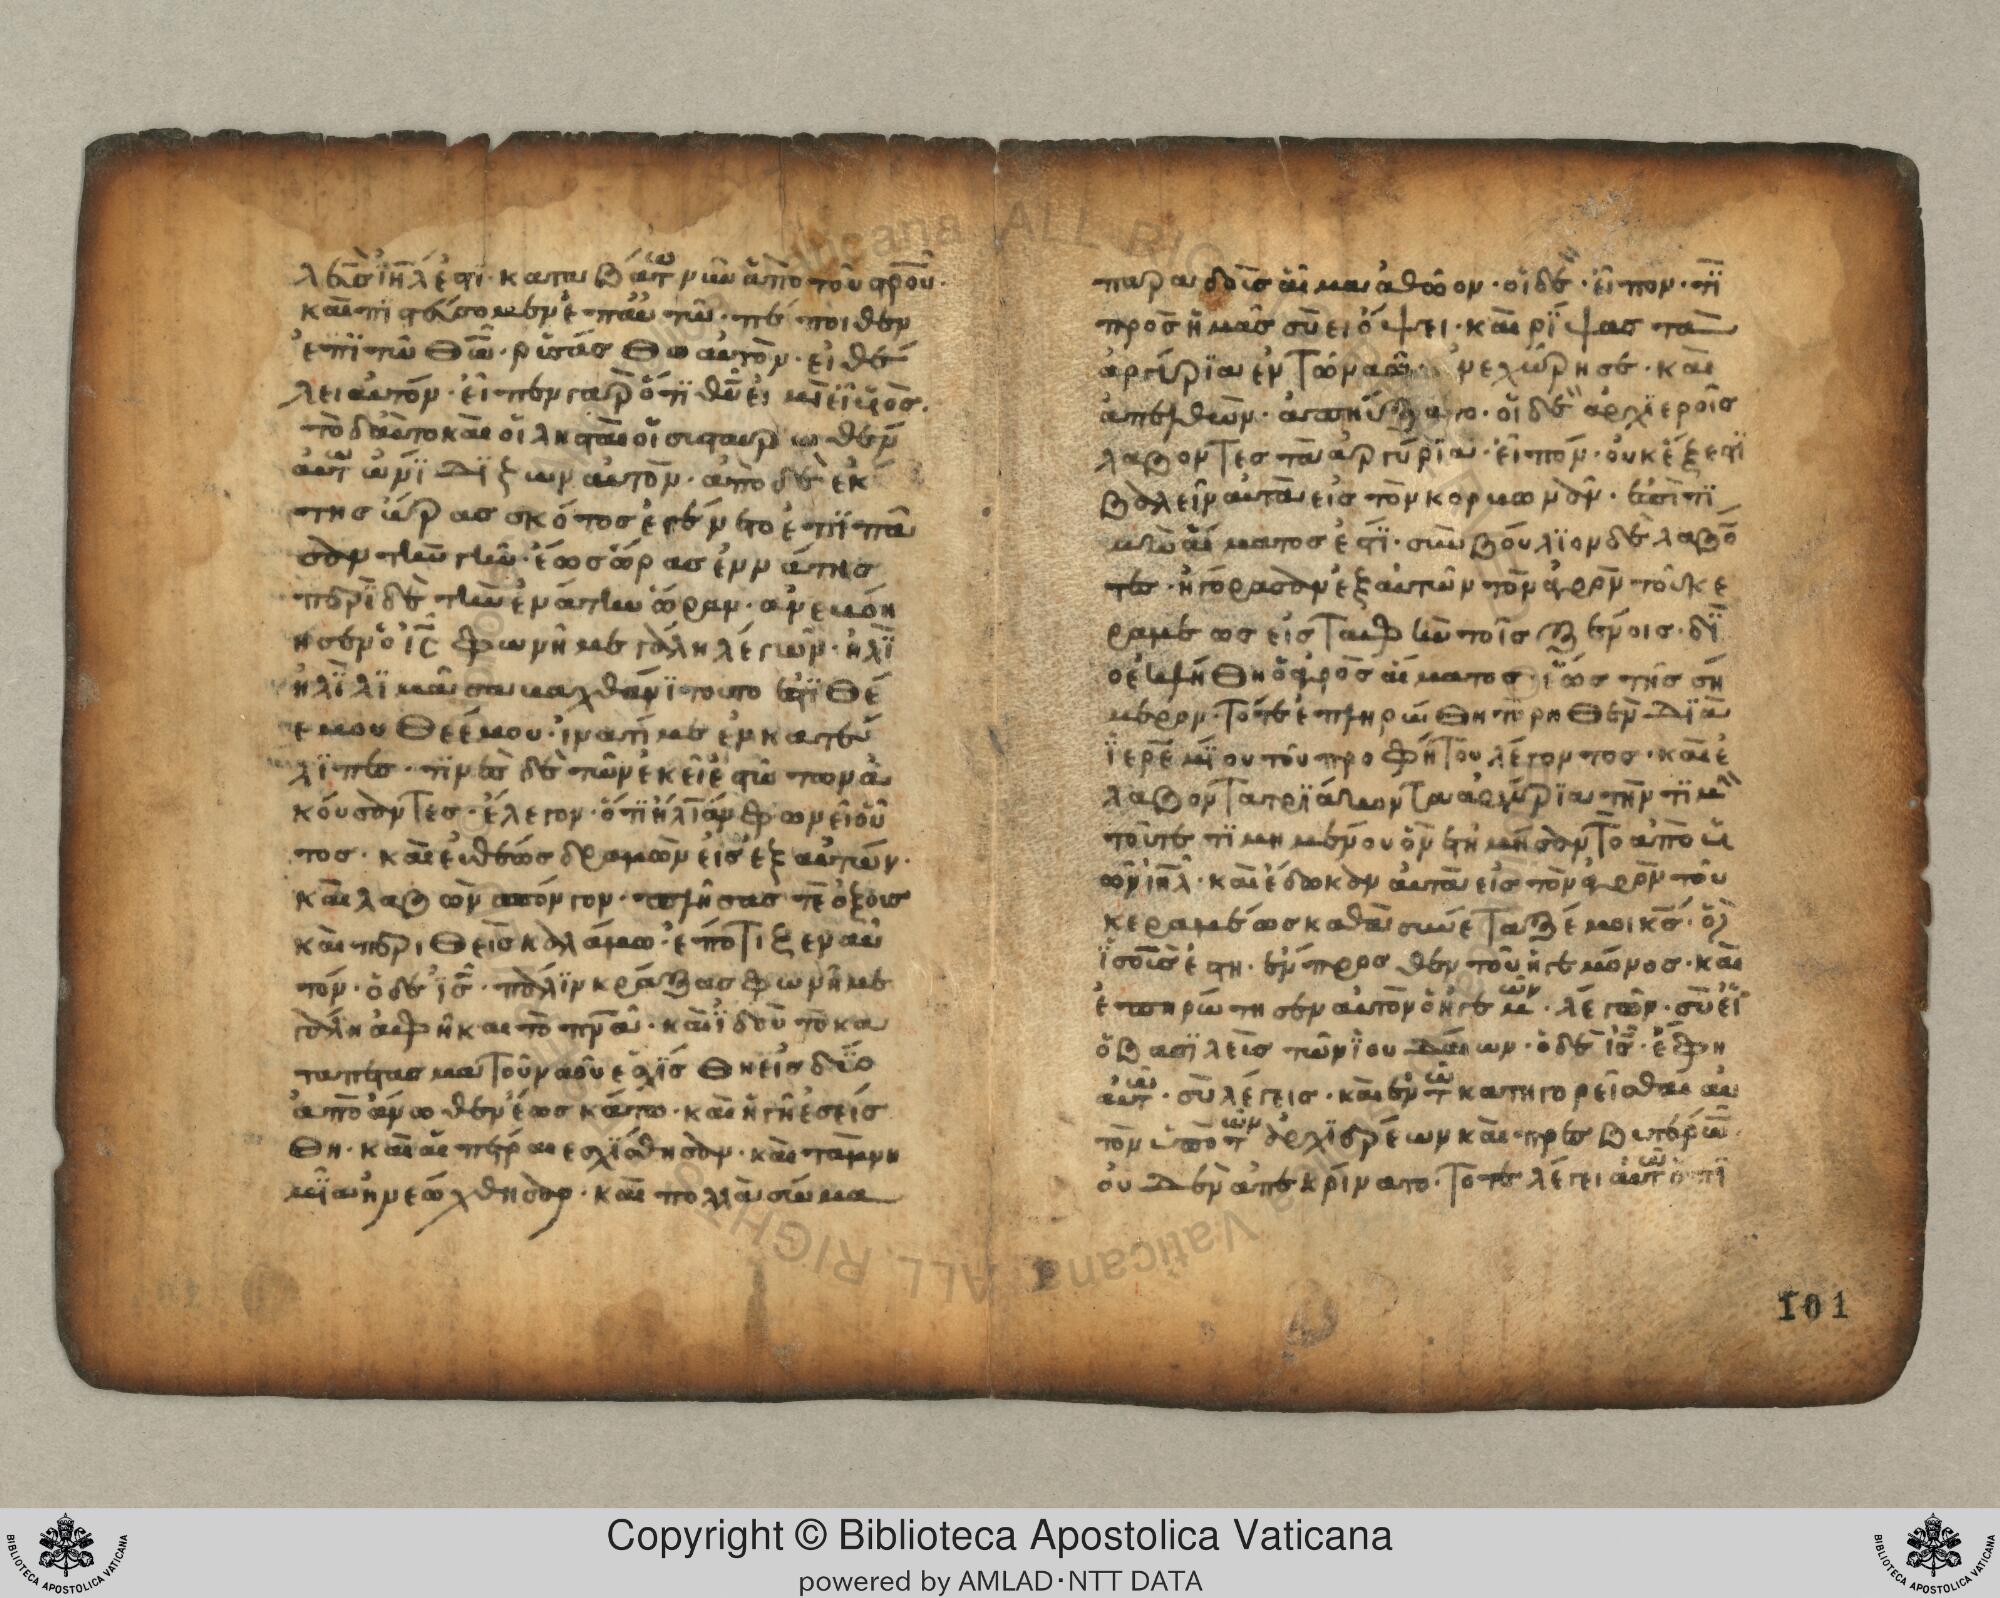 λευσ ἰη̅λ ἐστϊ· καταβάτω νῦν ἀπὸ τοῦ στρ̅ου·
καὶ πιστεύσομεν ἐπ αὐτῶ· πέποιθεν
ἐπὶ τῶ θ̅ω· ρυσάσθω αὐτὸν· εἰ θέ
λει αὐτόν· εἶπεν γὰρ ὅτι θ̅υ εἰμὶ ϋἱος·
τὸ δ αὐτὸ καὶ οἱ ληστὲ οἱ σισταυρωθέν
αὐτῶ ὠνίδιζων αὐτὸν· ἀπὸ δὲ ἕκ
της ὥρας σκότος ἐγένετο ἐπὶ πᾶ
σαν τὴν γῆν· ἕωσ ὥρας ἐννάτης
περὶ δὲ τὴν ἐνάτην ὥραν· ἀνεβόη
ησεν ὁ ι̅ς φωνῆ μεγάλη λέγων· ἠλὶ
ἠλὶ λιμᾶ σαμαχθανί τουτο ἐστϊ θέ
ε μου θεέ μου· ἱνατί με ἐνκατέ
λϊπες· τινὲς δὲ τῶν ἐκεῖ ἐστώτων ἀ
κόυσαντες· ἔλεγον· ὅτι ἠλίαν φωνεῖ οὗ
τος· καὶ εὐθέωσ δραμὼν εἷς ἐξ αὐτῶν·
καὶ λαβὼν σπόνγον· πλήσας τε ὄξους
καὶ περιθεὶς καλάμω· ἐπότιζεν αὐ
τόν· ὁ δὲ ι̅ς· πάλϊν κράξας φωνῆ με
γάλη ἀφῆκαι τὸ πν̅α· καὶ ἰδοὺ τὸ κα
ταπέτασμα τοῦ ναοῦ ἐσχίσθη εἰς δύο
ἀπὸ ἄνωθεν ἕως κάτω· καὶ ἡ γῆ ἐσείσ
θη· καὶ αἱ πέτραι ἐσχίσθησαν· καὶ τὰ μνη
μῖα ἠνεώχθησαν· καὶ πολλὰ σώμα
παραδοὺς αἷμα ἀθῶον· οἱ δὲ· εἶπον· τί
προς ἡμᾶς σὺ εἰ ὄψει· καὶ ρίψας τὰ
ἀργύρια ἐν τῶ ναῶ· ἀνεχώρησε· καὶ
ἀπελθὼν· ἀπήγξατο· οἱ δὲ ἀρχϊεροῖς
λαβόντες τὰ ἀργύρια· εἶπόν· οὐκ ἔξεστϊ
βαλεῖν αὐτὰ εἰς τὸν κορμωνὰν· ἐπεὶ τϊ
μὴ αἵματος ἐστϊ· συνβούλϊον δὲ λαβό
τες· ἠγόρασαν ἐξ αὐτῶν τὸν ἀγρὸν τοῦ κε
ραμέως εἰς ταφὴν τοῖς ξένοις· δϊ
ο ἐκλήθη ὁ ἀγρὸς αἵματος· ἕως τῆς σή
μερον· τότε ἐπληρώθη τὸ ρηθὲν δϊὰ
ϊερεμίου τοῦ προφήτου λέγοντος· καὶ ἔ
λαβον τὰ τριάκοντα ἀργύρια τὴν τϊμὴν
τοῦ τετϊμημένου ὃν ἐτϊμήσαντο ἀπὸ ϋ
ῶν ἰη̅λ· καὶ ἔδωκαν αὐτὰ εἰς τὸν ἀγρὸν τοῦ
κεραμέως καθὰ συνέταξέ μοι κ̅ς· ὁ δὲ
ϊσοῦς ἔστη· ἔμπροσθεν τοῦ ἡγεμόνος· καὶ
ἐπηρώτησεν αὐτὸν ὁ ἡγεμών· λέγων· σὺ εἶ
ὁ βασϊλεὶς τῶν ϊουδαίων· ὁ δὲ ι̅ς· ἔφη
αὐτῶ· σὺ λέγεις· καὶ ἐν τῶ κατηγορεῖσθαι αὐ
τὸν ὑπὸ τῶν ἀρχϊερέων καὶ πρεσβυτέρων
ουδὲν ἀπεκρίνατο· τότε λέγει αὐτῶ ὁ πϊ
101
Copyright © Biblioteca Apostolica Vaticana
powered by AMLAD·NTT DATA
BIBLIOTECA APOSTOLICA VATICANA
BIBLIOTECA APOSTOLICA VATICANA